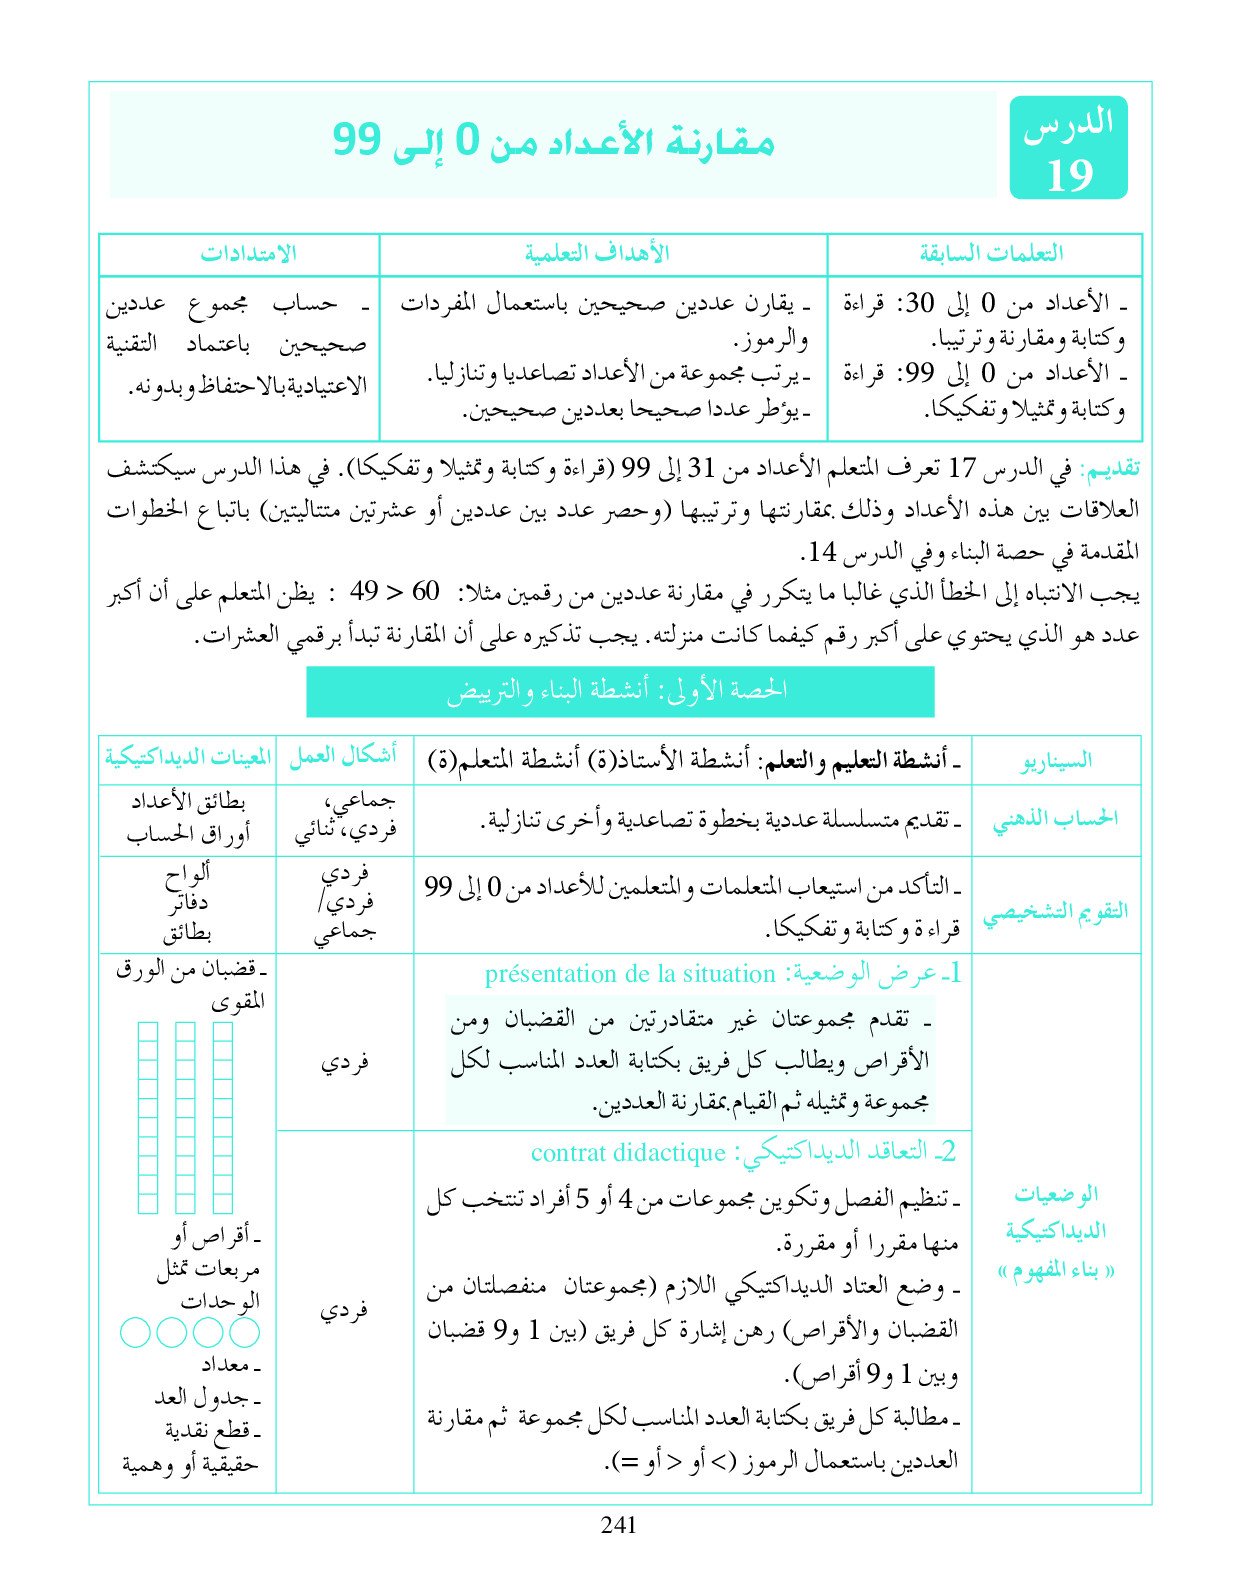 الدرس
19
مقارنة الأعداد من 0 إلى 99
التعلمات السابقة
الأهداف التعلمية
الامتدادات
ـ الأعداد من 0 إلى 30: قراءة
وكتابة ومقارنة وترتيبا.
ـ الأعداد من 0 إلى 99: قراءة
وكتابة وتمثيلا وتفكيكا.
ـ يقارن عددين صحيحين باستعمال المفردات
والرموز.
ـ يرتب مجموعة من الأعداد تصاعديا وتنازليا.
ـ يؤطر عددا صحيحا بعددين صحيحين.
ـ حساب مجموع عددين
صحيحين باعتماد التقنية
الاعتيادية بالاحتفاظ وبدونه.
تقديم: في الدرس 17 تعرف المتعلم الأعداد من 31 إلى 99 (قراءة وكتابة وتمثيلا وتفكيكا). في هذا الدرس سيكتشف
العلاقات بين هذه الأعداد وذلك بمقارنتها وترتيبها (وحصر عدد بين عددين أو عشرتين متتاليتين) باتباع الخطوات
المقدمة في حصة البناء وفي الدرس 14.
يجب الانتباه إلى الخطأ الذي غالبا ما يتكرر في مقارنة عددين من رقمين مثلا: 60 < 49 : يظن المتعلم على أن أكبر
عدد هو الذي يحتوي على أكبر رقم كيفما كانت منزلته. يجب تذكيره على أن المقارنة تبدأ برقمي العشرات.
الحصة الأولى: أنشطة البناء والترييض
السيناريو
ـ أنشطة التعليم والتعلم: أنشطة الأستاذ(ة) أنشطة المتعلم(ة)
أشكال العمل
المعينات الديداكتيكية
الحساب الذهني
ـ تقديم متسلسلة عددية بخطوة تصاعدية وأخرى تنازلية.
جماعي،
فردي، ثنائي
بطائق الأعداد
أوراق الحساب
التقويم التشخيصي
ـ التأكد من استيعاب المتعلمات والمتعلمين للأعداد من 0 إلى 99
قراءة وكتابة وتفكيكا.
فردي
فردي/
جماعي
ألواح
دفاتر
بطائق
الوضعيات
الديداكتيكية
« بناء المفهوم »
1ـ عرض الوضعية: présentation de la situation
ـ تقدم مجموعتان غير متقادرتين من القضبان ومن
الأقراص ويطالب كل فريق بكتابة العدد المناسب لكل
مجموعة وتمثيله ثم القيام بمقارنة العددين.
فردي
2ـ التعاقد الديداكتيكي: contrat didactique
ـ تنظيم الفصل وتكوين مجموعات من 4 أو 5 أفراد تنتخب كل
منها مقررا أو مقررة.
ـ وضع العتاد الديداكتيكي اللازم (مجموعتان منفصلتان من
القضبان والأقراص) رهن إشارة كل فريق (بين 1 و9 قضبان
وبين 1 و9 أقراص).
ـ مطالبة كل فريق بكتابة العدد المناسب لكل مجموعة ثم مقارنة
العددين باستعمال الرموز (> أو < أو =).
فردي
ـ قضبان من الورق
المقوى
ـ أقراص أو
مربعات تمثل
الوحدات
ـ معداد
ـ جدول العد
ـ قطع نقدية
حقيقية أو وهمية
241